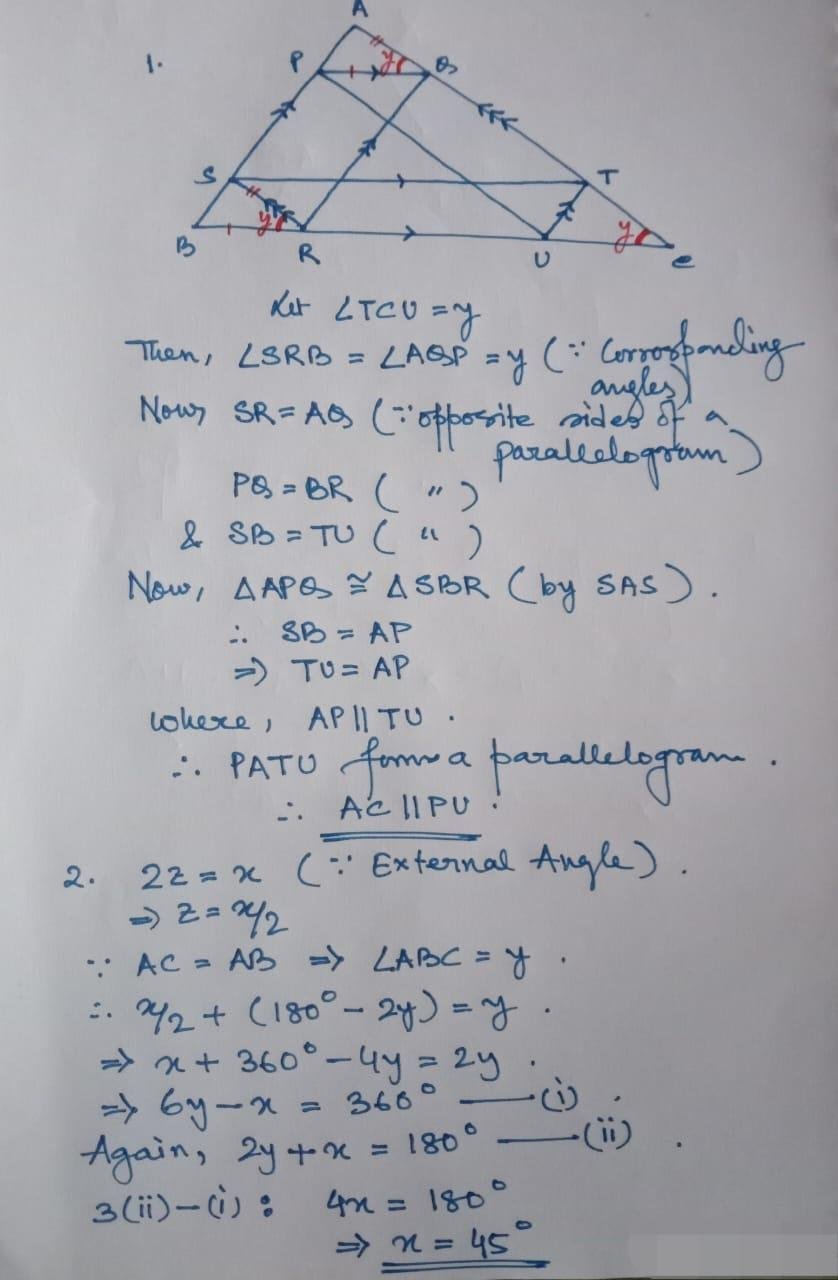 1.
A
P
Q
y
S
T
B
y
R
U
y
C
Let ∠TCU = y
Then, ∠SRB = ∠AQP = y (∵ Corrosponding angles)
Now, SR = AQ (∵ opposite sides of a parallelogram)
PQ = BR ( " )
& SB = TU ( " )
Now, △APQ ≅ △SBR (by SAS).
∴ SB = AP
⇒ TU = AP
where, AP || TU.
∴ PATU forms a parallelogram.
∴ AC || PU.
2. 2z = x (∵ External Angle).
⇒ z = x/2
∵ AC = AB ⇒ ∠ABC = y.
∴ x/2 + (180° - 2y) = y.
⇒ x + 360° - 4y = 2y.
⇒ 6y - x = 360° —(i).
Again, 2y + x = 180° —(ii).
3(ii) - (i): 4x = 180°
⇒ x = 45°